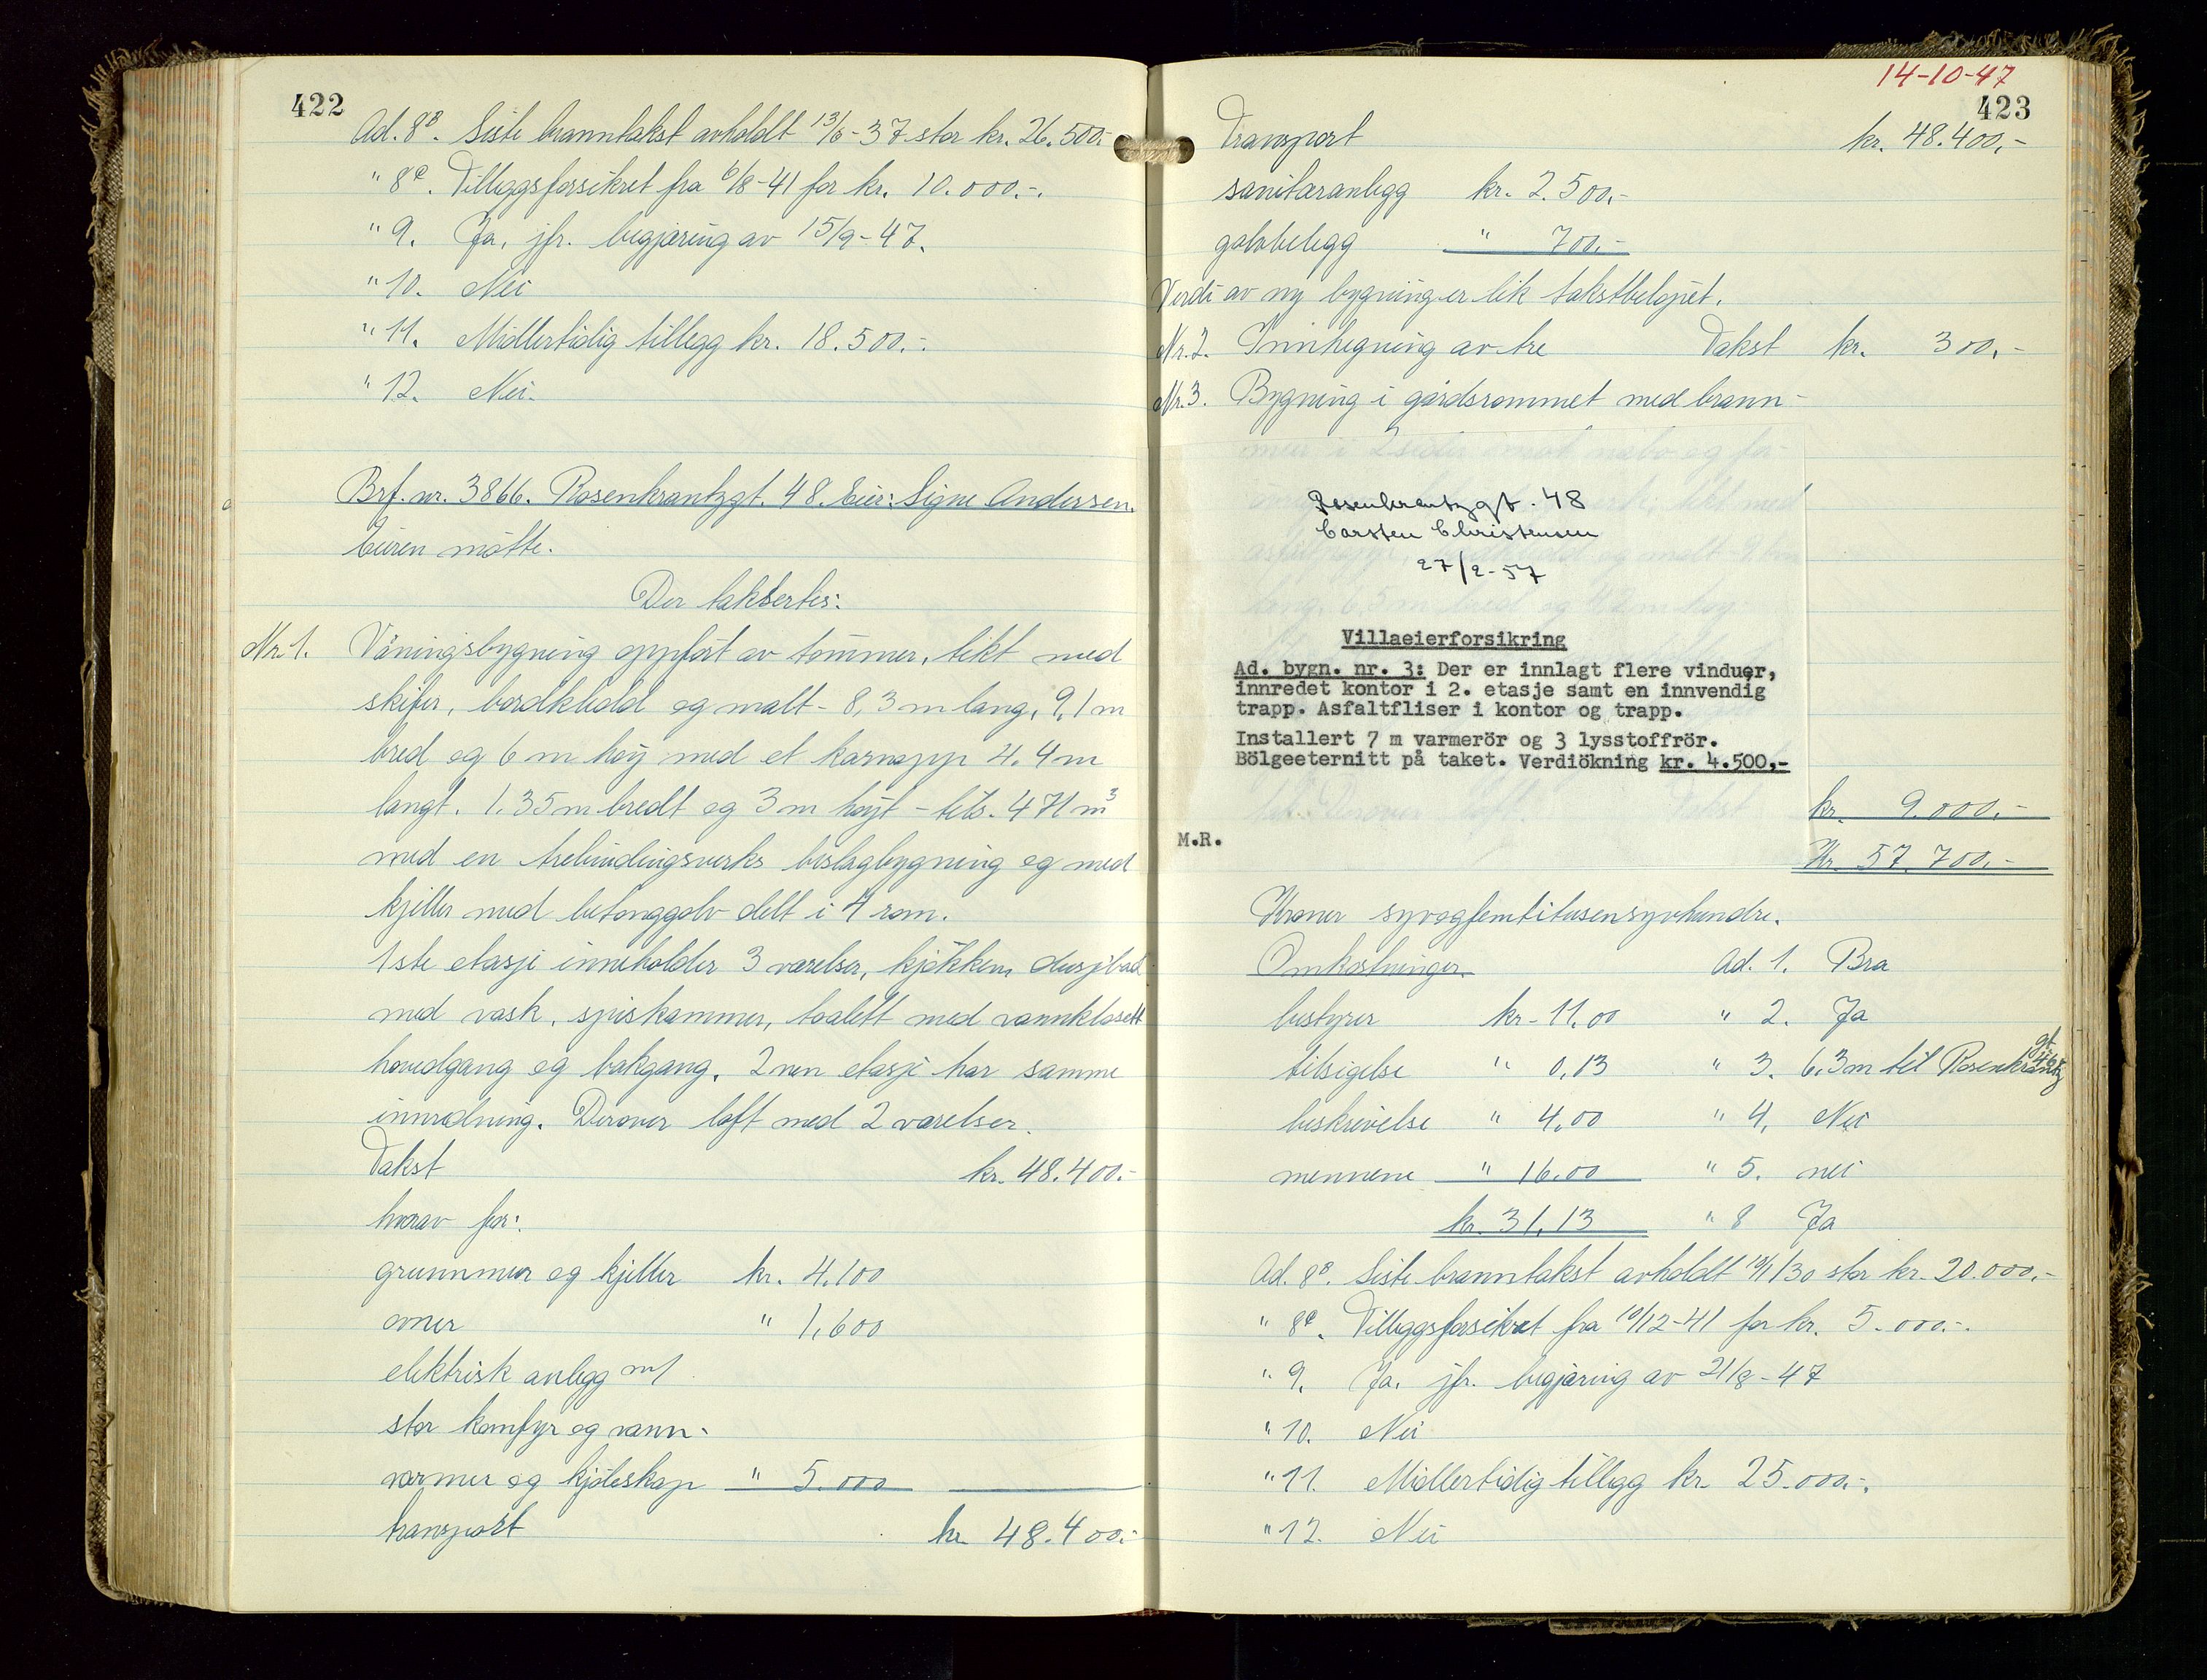 422
Ad. 8B. Siste branntakst avholdt 13/6-37 stor kr. 26.500.-
" 8C. Tilleggsforsikret fra 6/8-41 for kr. 10.000.-.
" 9. Ja, jfr. begjæring av 15/9-47.
" 10. Nei
" 11. Midlertidig tillegg kr. 18.500.-.
" 12. Nei.
Brf. nr. 3866. Rosenkrantzgt. 48. Eier: Signe Andersen.
Eieren møtte.
Der taksertes:
Nr. 1. Våningsbygning oppført av tømmer, tekt med
skifer, bordkledd og malt - 8,3 m lang, 9,1 m
bred og 6 m høy med et karnapp 4.4 m
langt. 1.35 m bredt og 3 m høyt - tils. 471 m3
med en trebindingsverks bislagbygning og med
kjeller med betonggolv delt i 4 rom.
1ste etasje inneholder 3 værelser, kjøkken, dusjbad
med vask, spiskammer, toalett med vannklosett
hovedgang og bakgang. 2nen etasje har samme
innredning. Derover loft med 2 værelser.
Takst kr. 48.400.-
hvorav for:
grunnmur og kjeller kr. 4.100
ovner " 1.600
elektrisk anlegg m/
stor komfyr og vann-
varmer og kjøleskap " 5.000
transport kr 48.400.-
14-10-47
423
Transport kr. 48.400,-
sanitæranlegg kr. 2.500,-
golvbelegg " 700,-
Verdi av ny bygning er lik takstbeløpet.
Nr. 2. Innhegning av tre Takst kr. 300,-
Nr. 3. Bygning i gårdsrommet med brann-
Rosenkrantzgt. 48
Carsten Christensen
27/2-57
Villaeierforsikring
Ad. bygn. nr. 3: Der er innlagt flere vinduer,
innredet kontor i 2. etasje samt en innvendig
trapp. Asfaltfliser i kontor og trapp.
Installert 7 m varmerör og 3 lysstoffrör.
Bölgeeternitt på taket. Verdiökning kr. 4.500,-
kr. 9.000.-
M.R.
Kr. 57.700,-
Kroner syvogfemtitusensyvhundre.
Omkostninger. Ad. 1. Bra
bestyrer kr. 11.00 " 2. Ja
tilsigelse " 0,13 " 3. 6,3 m til Rosenkrantz
gt. 46
beskrivelse " 4,00 " 4. Nei
mennene " 16.00 " 5. nei
kr. 31,13 " 8 Ja
Ad. 8B. Siste branntakst avholdt /30 stor kr. 20.000,-
" 8C. Tilleggsforsikret fra 10/12-41 for kr. 5.000.-.
" 9. Ja. jfr. begjæring av 21/8-47
" 10. Nei
" 11. Midlertidig tillegg kr. 25.000.-.
" 12. Nei